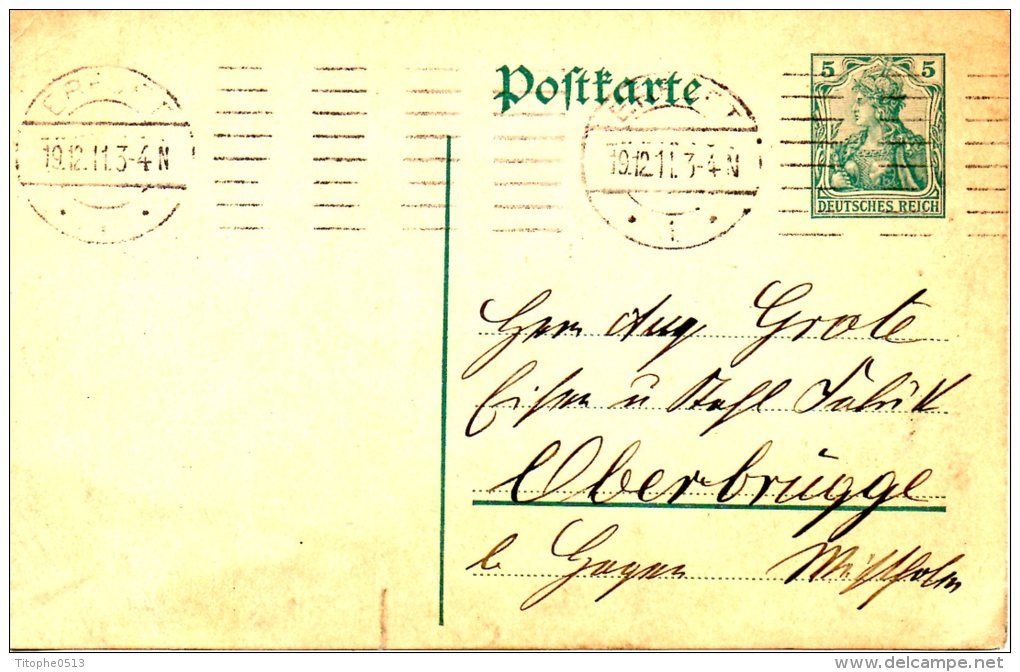 Postkarte
5 5
DEUTSCHES REICH
ERFURT
19.12.11.3-4 N
1
ERFURT
19.12.11.3-4 N
1
Herrn Aug Grote
Eisen u Stahl Fabrik
Oberbrügge
b Hagen
Titophe0513
delcampe.net